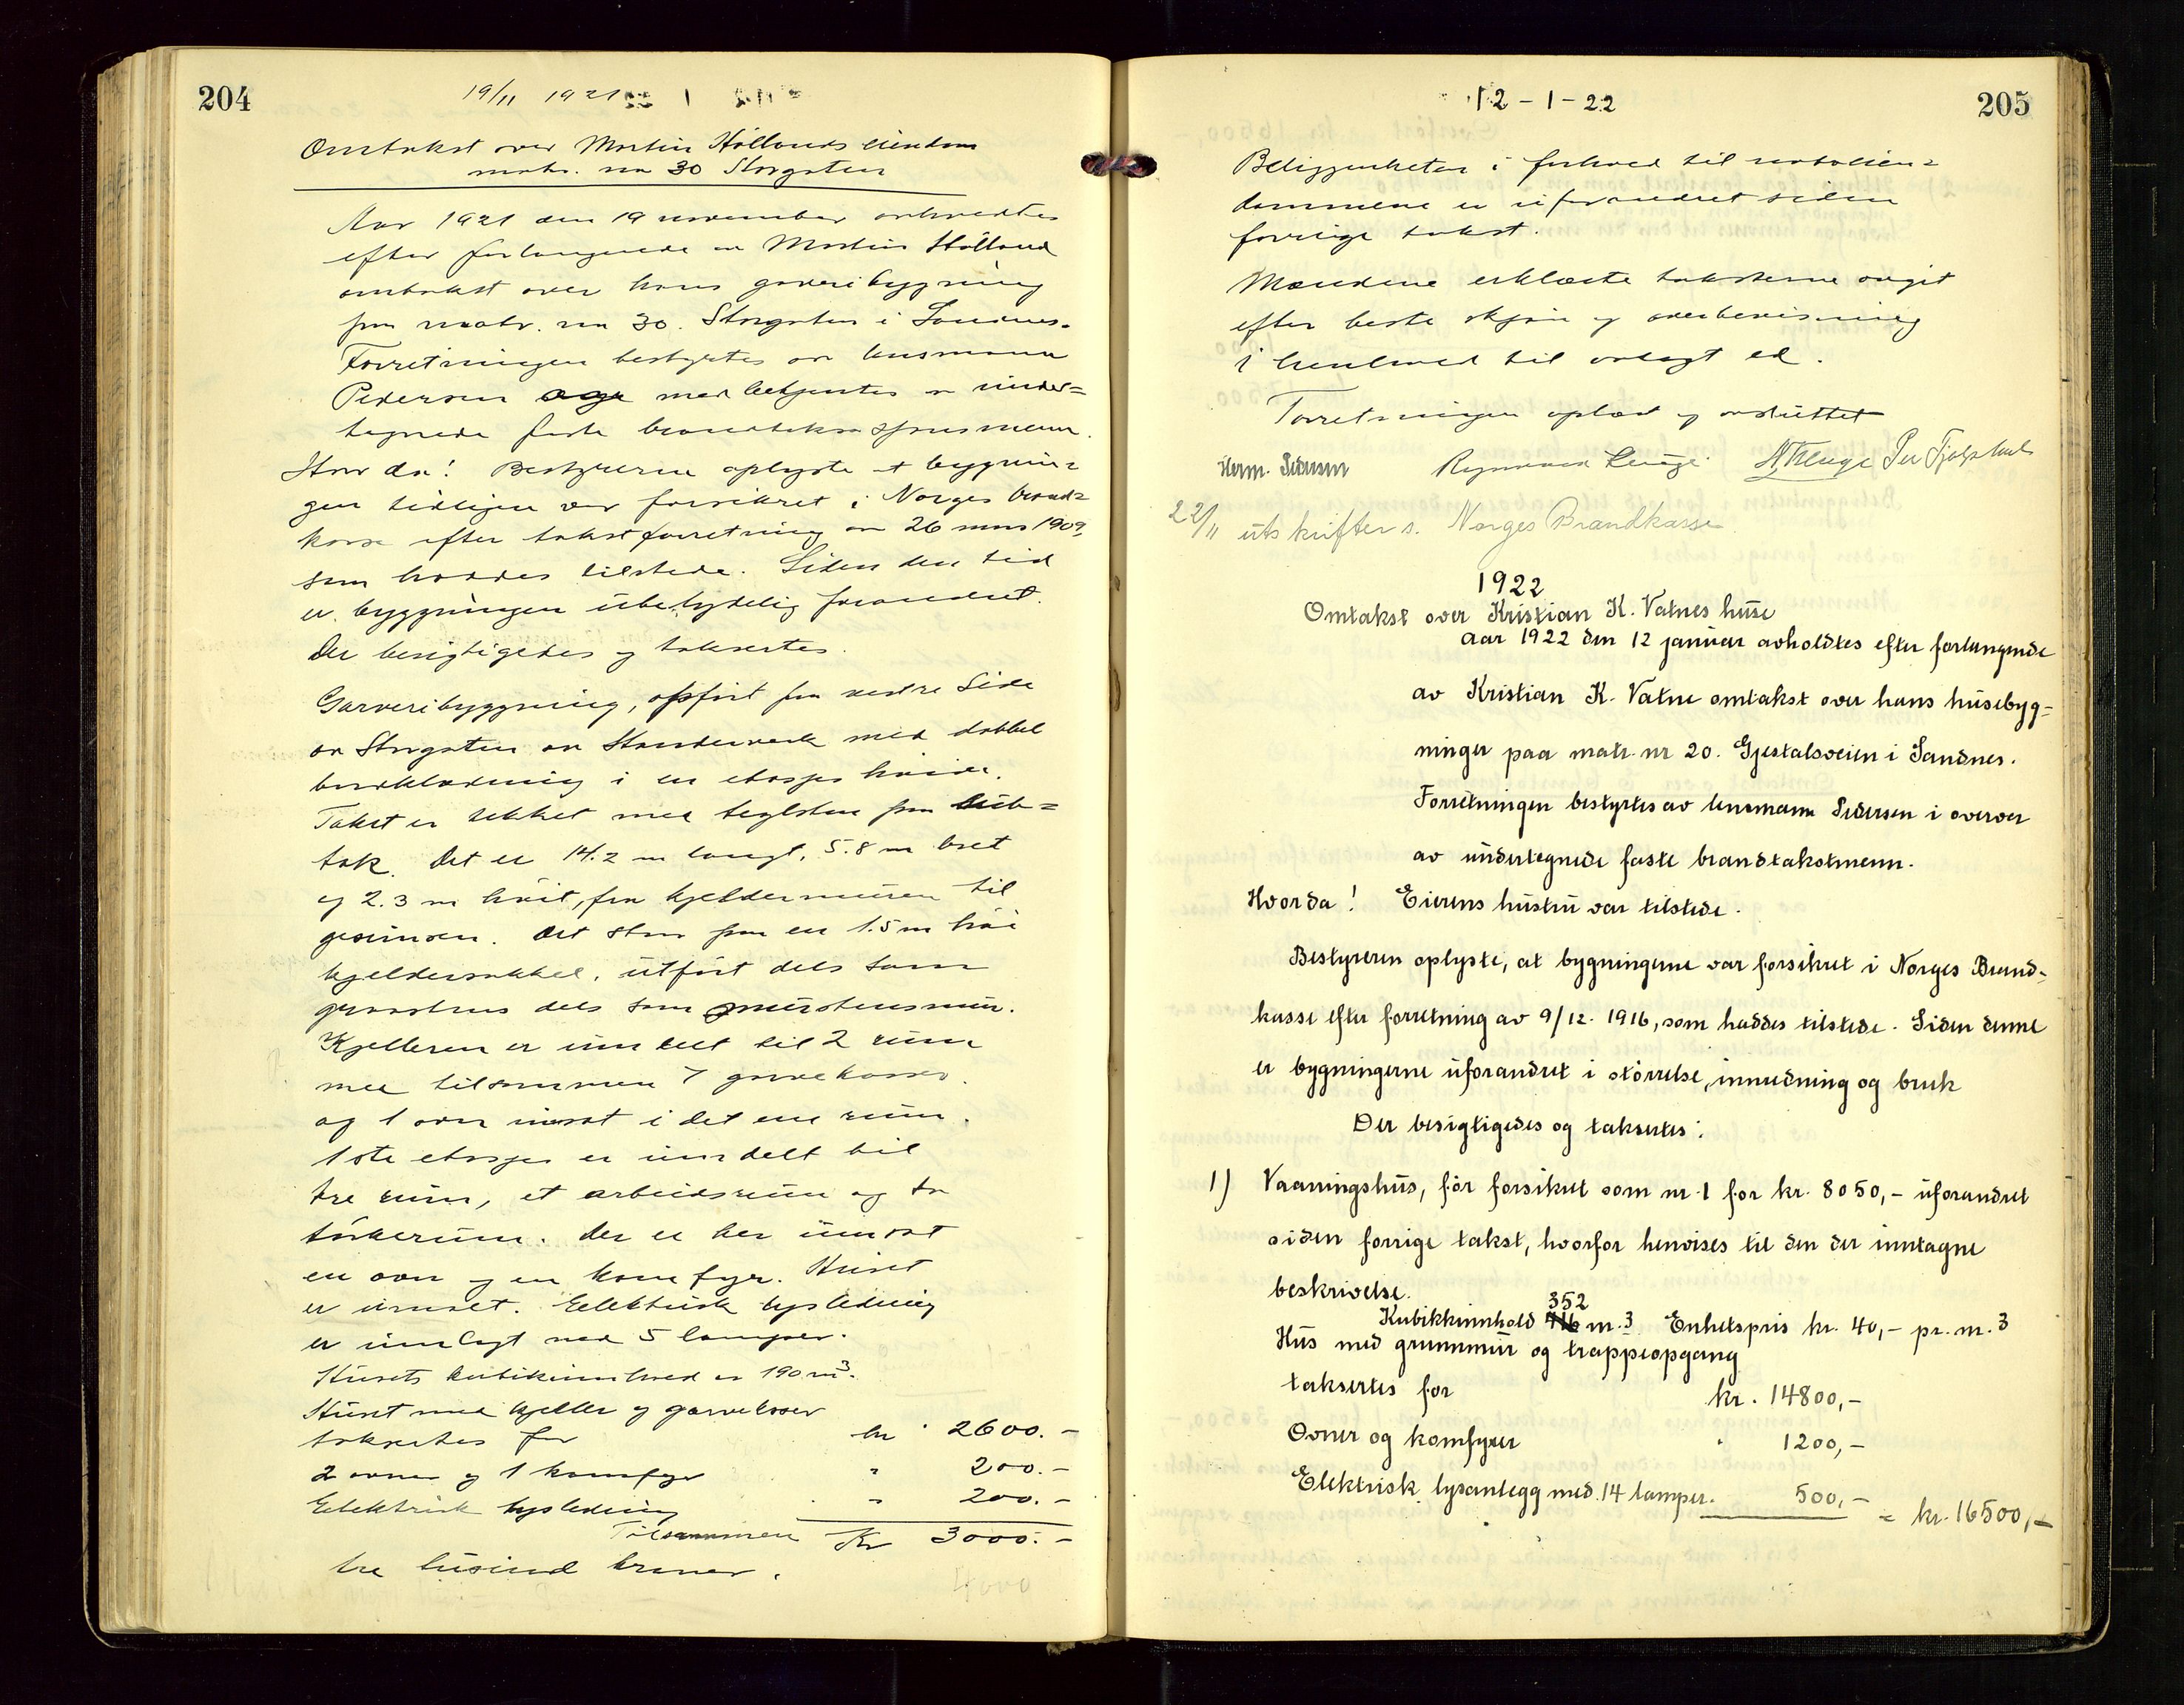 204
19/11 1921
Omtakst over Martin Hollands eiendom
matr. no 30 Storgaten
Aar 1921 den 19 november avholdtes
efter forlangende av Martin Hölland
omtakst over hans garveribygning
paa matr. no 30. Storgaten i Sandnes.
Forretningen bestyrtes av lensmann
Pedersen og med betjentes av under=
tegnede faste brandtakstmenn.
Hvor da! Bestyreren oplyste at bygnin=
gen tidligere var forsikret i Norges brand=
kasse efter takstforretning av 26 mars 1909,
som haddes tilstede. Siden den tid
er byggningen ubetydelig forandret.
Der besigtigedes og taksertes.
Garveribyggning, opført paa vestre Side
av Storgaten av Standerverk med dobbel
bordklædning i en etasjes höide.
Taket er tekket med teglsten paa sub=
tak. Det er 14.2 m langt, 5.8 m bret
og 2.3 m höit, fra kjeldermuren til
gesimsen. Det staar paa en 1.5 m höi
kjeldersokkel, utfört dels som
graastens dels som murstensmur.
Kjelleren er inndelt til 2 rum
med tilsammen 7 garvekasser
og 1 ovn insat i det ene rum.
1ste etasje er inndelt til
tre rum, et arbeidsrum og to
törkerum. Der er her innsat
en ovn og en komfyr. Huset
er umalt. Elektrisk lysledning
er innlagt med 5 lamper.
Husets kubikinnhold er 190 m³.
Huset med kjeller og garvekasser
taksertes for kr 2600.-
2 ovner og 1 komfyr " 200.-
Elektrisk lysledning " 200.-
Tilsammen Kr 3000.-
tre tusind kroner.
4000
12-1-22
205
Beliggenheten i forhold til naboeien=
dommene er uforandret siden
forrige takst.
Mændene erklærte taksterne avgit
efter beste skjön og overbevisning
i henhold til avlagt ed.
Forretningen oplæst og avsluttet
Herm. Pedersen
22/11 utskrifter s. Norges Brandkasse
1922
Omtakst over Kristian K. Vatnes huse
Aar 1922 den 12 januar avholdtes efter forlangende
av Kristian K. Vatne omtakst over hans husebyg=
ninger paa matr. nr 20. Gjestalsveien i Sandnes.
Forretningen bestyrtes av lensmann Pedersen i overvær
av undertegnede faste brandtakstmenn.
Hvor da! Eierens hustru var tilstede.
Bestyreren oplyste, at bygningerne var forsikret i Norges Brand-
kasse efter forretning av 9/12. 1916, som haddes tilstede. Siden denne
er bygningerne uforandret i störrelse, innredning og bruk
Der besigtigedes og taksertes:
1) Vaaningshus, för forsikret som nr. 1 for kr. 8050,- uforandret
siden forrige takst, hvorfor henvises til den der inntagne
beskrivelse.
352
Kubikkinnhold 416 m.3 Enhetspris kr. 40,- pr. m.3
Hus med grunnmur og trappeopgang
taksertes for kr. 14800,-
Ovner og komfyrer " 1200,-
Elektrisk lysanlegg med 14 lamper. 500,- = kr. 16500,-